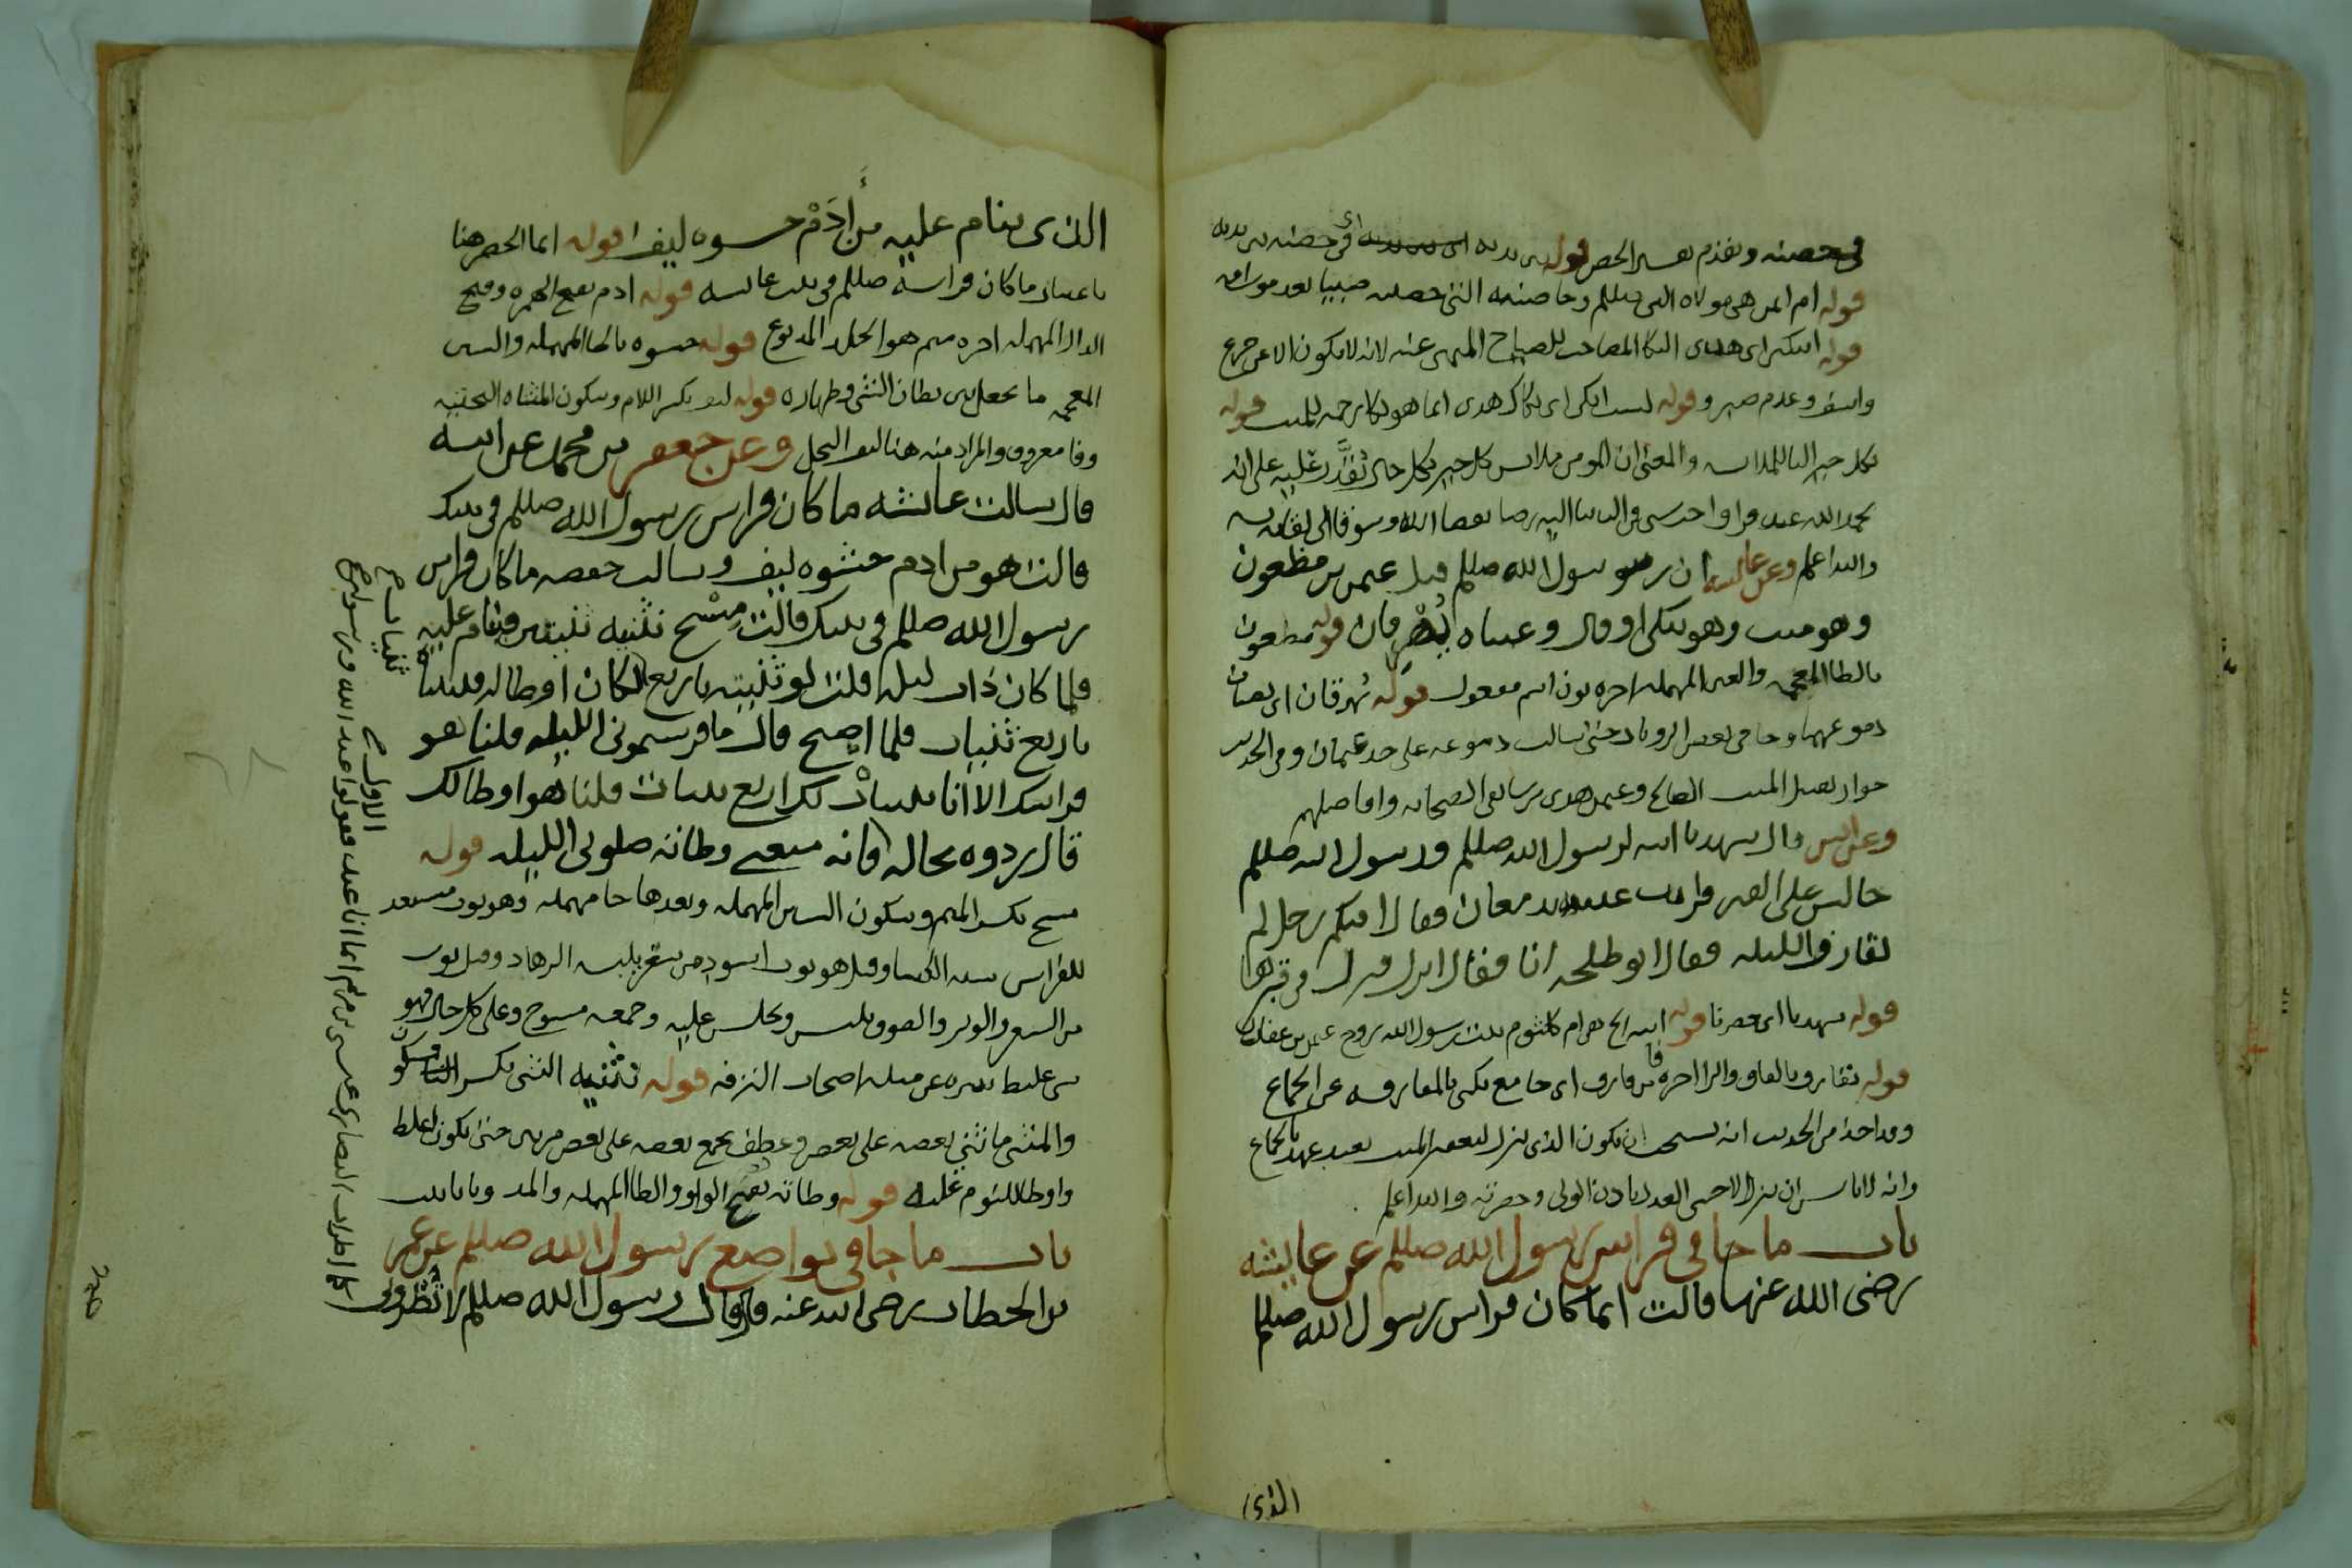 في حصنه وتقدم تفسير الحصن قوله بين يديه اي في حصنه بين يديه
قوله ام ايمن هي مولاه النبي صللم وحاضنته التي حصنته صبيا بعد موت امه
قوله اتبكي اي هدا البكا المصاحب للصياح المنهي عنه لانه لا يكون الا عن جزع
واسف وعدم صبر وقوله لست ابكي اي بكاك هدى انما هو بكا رحمه للميت قوله
بكل خير البا للملابسه والمعنى ان المومن ملابس كل خير بكل حال تقدر عليه على انه
يحمد الله عند
والله اعلم وعن عائشه ان رسول الله صللم قبل عثمن بن مظعون
وهو ميت وهو يبكي او قال وعيناه تهرقان قوله مظعون
بالظا المعجمه والعين المهمله اخره نون اسم مفعول قوله تهرقان اي تصبان
دموعهما وجا في بعض الروايات حتى سالت دموعه على خد عثمان وفي الحديث
جواز تقبيل الميت الصالح وعثمن هدى من سابقي الصحابه وافاضلهم
وعن انس قال شهدنا ابنه لرسول الله صللم ورسول الله صللم
جالس على القبر فرايت عينيه تدمعان فقال افيكم رجل لم
يقارف الليله فقال ابو طلحه انا فقال انزل فنزل في قبرها
قوله شهدنا اي حضرنا قوله ابنه الخ هي ام كلثوم بنت رسول الله زوج عثمن بن عفان
قوله يقارف بالقاف والرا اخره فا من قارف اي جامع يكنى بالمقارفه عن الجماع
وقد اخذ من الحديث انه يستحب ان يكون الذي ينزل لقبر الميت بعيد عهد بالجماع
وانه لا باس ان ينزل الاجنبي العدل باذن الولي وحضرته والله اعلم
باب ما جا في فراش رسول الله صللم عن عايشه
رضى الله عنها قالت انما كان فراش رسول الله صللم
الذي
الذي ينام عليه من أدم حشوه ليف قوله انما الحصر هنا
باعتبار ما كان فراشه صللم في بيت عائشه قوله ادم بفتح الهمزه وفتح
الدال المهمله اخره ميم هو الجلد المدبوغ قوله حشوه بالحا المهمله والشين
المعجمه ما يجعل بين بطان الشي وظهاره قوله ليف بكسر اللام وسكون المثناه التحتيه
وفا معروف والمراد منه هنا ليف النخل وعن جعفر بن محمد عن ابيه
قال سالت عائشه ما كان فراش رسول الله صللم في بيتك
قالت هو من ادم حشوه ليف وسالت حفصه ما كان فراش
رسول الله صللم في بيتك قالت مسح نثنيه ثنيتين فينام عليه
فلما كان ذات ليله قلت لو ثنيته باربع لكان اوطا له فثنيناه
باربع ثنيات فلما اصبح قال ما فرشتموني الليله قلنا هو
فراشك الا انا ثنيناه لك اربع ثنيات قلنا هو اوطا لك
قال ردوه بحاله فانه منعني وطاته صلوتي الليله قوله
مسح بكسر الميم وسكون السين المهمله وبعدها حا مهمله وهو ثوب مستعد
للفراش يشبه الكسا وقيل هو ثوب اسود من شعر يلبسه الزهاد وقيل ثوب
من الشعر والوبر والصوف يلبس ويجلس عليه وجمعه مسوح وعلى كل حال فهو
قوله نثنيه الثني بكسر الثا وسكون
والمثنى ما ثني بعضه على بعض وعطف بجمع بعضه على بعض مرتين حتى يكون اغلظ
واوطا للنوم عليه قوله وطاته بفتح الواو والطا المهمله والمد وتا تانيث
باب ما جا في تواضع رسول الله صللم عن عمر
بن الخطاب رضي الله عنه قال قال رسول الله صللم لا تطروني
ثنيات
الاولى
كما اطرات النصارى عيسى بن مريم انما انا عبد فقولوا عبد الله ورسوله